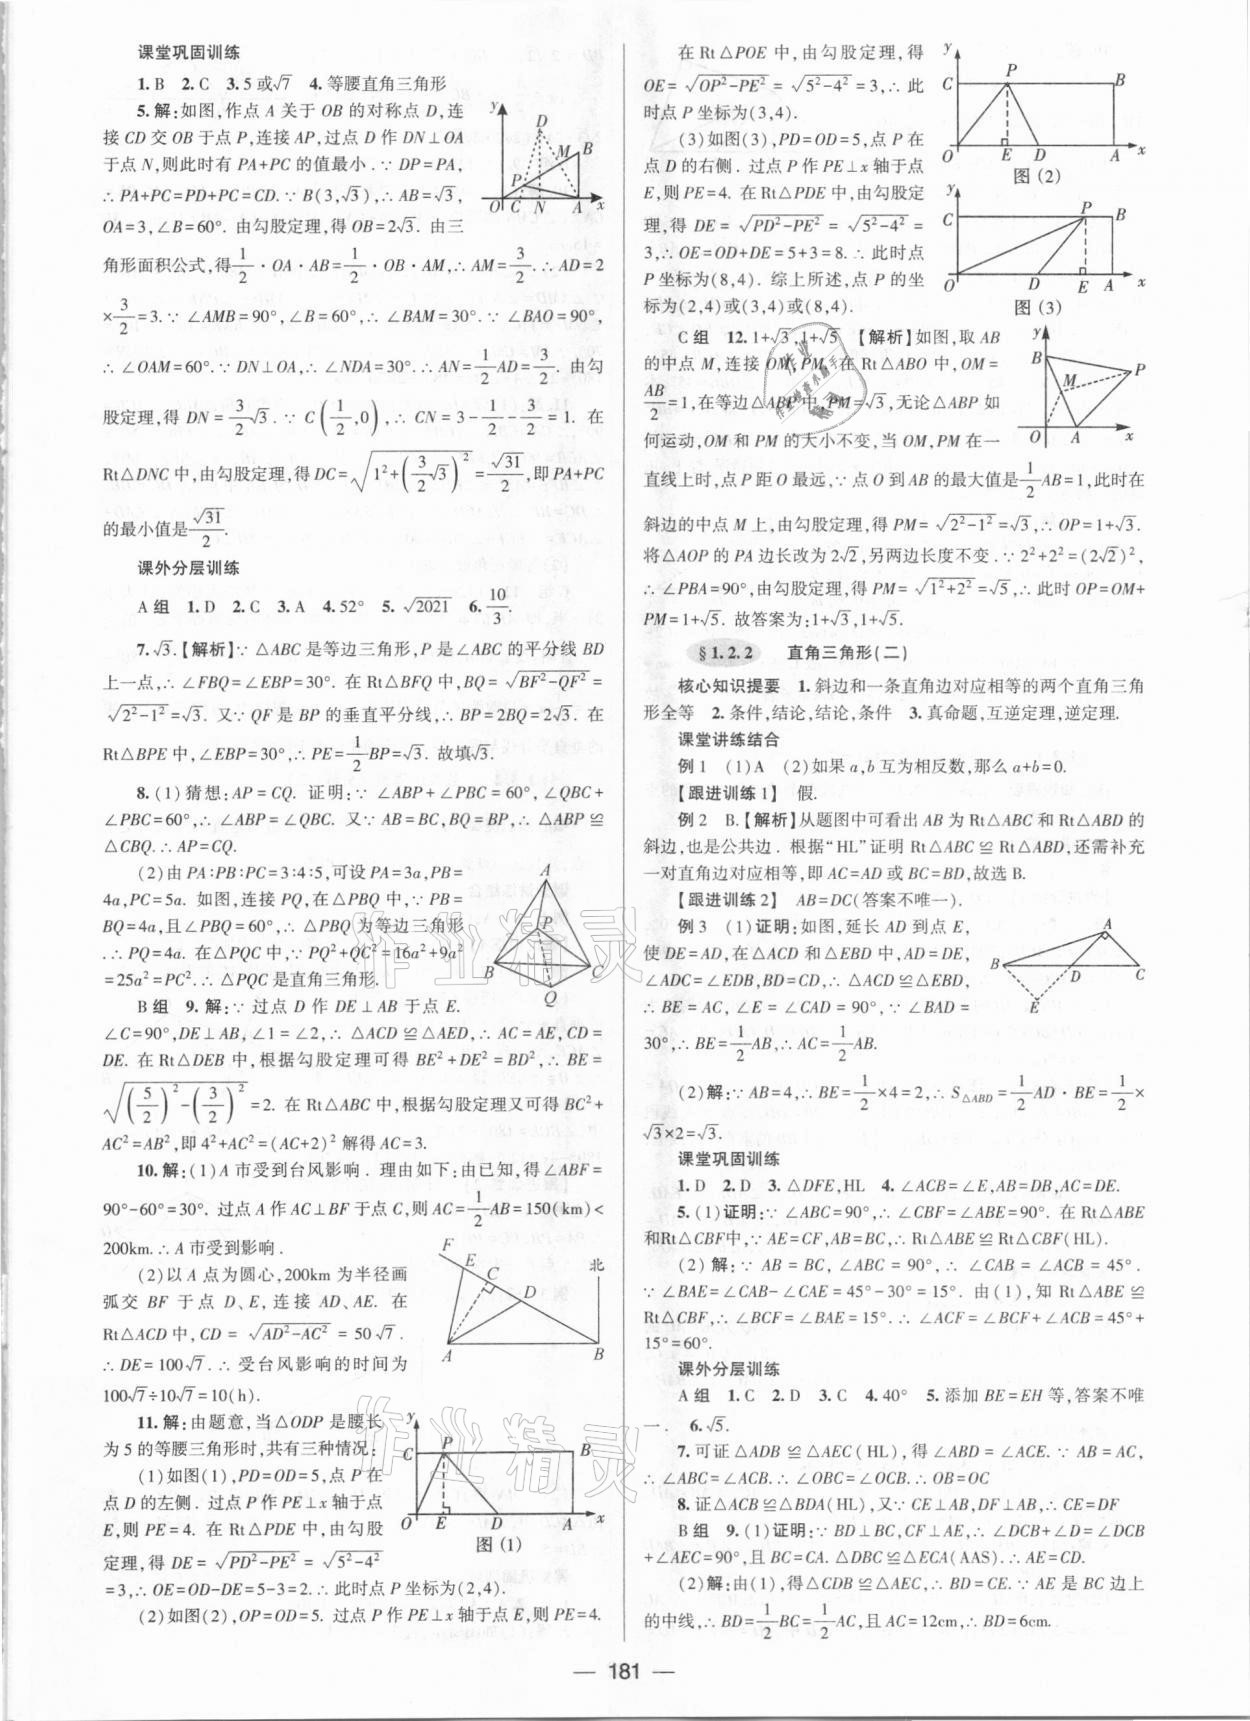 课堂巩固训练
1.B　2.C　3.5或√7　4.等腰直角三角形
5.解:如图,作点A关于OB的对称点D,连
接CD交OB于点P,连接AP,过点D作DN⊥OA
于点N,则此时有PA+PC的值最小.∵DP=PA,
∴PA+PC=PD+PC=CD.∵B(3,√3),∴AB=√3,
OA=3,∠B=60°.由勾股定理,得OB=2√3.由三
角形面积公式,得1/2·OA·AB=1/2·OB·AM,∴AM=3/2.∴AD=2
×3/2=3.∵∠AMB=90°,∠B=60°,∴∠BAM=30°.∵∠BAO=90°,
∴∠OAM=60°.∵DN⊥OA,∴∠NDA=30°.∴AN=1/2AD=3/2.由勾
股定理,得DN=3/2√3.∵C(1/2,0),∴CN=3-1/2-3/2=1.在
Rt△DNC中,由勾股定理,得DC=√(1²+(3/2√3)²)=√31/2,即PA+PC
的最小值是√31/2.
y D M B P O C N A x
课外分层训练
A组　1.D　2.C　3.A　4.52°　5.√2021　6.10/3.
7.√3.【解析】∵△ABC是等边三角形,P是∠ABC的平分线BD
上一点,∴∠FBQ=∠EBP=30°.在Rt△BFQ中,BQ=√(BF²-QF²)=
√(2²-1²)=√3.又∵QF是BP的垂直平分线,∴BP=2BQ=2√3.在
Rt△BPE中,∠EBP=30°,∴PE=1/2BP=√3.故填√3.
8.(1)猜想:AP=CQ.证明:∵∠ABP+∠PBC=60°,∠QBC+
∠PBC=60°,∴∠ABP=∠QBC.又∵AB=BC,BQ=BP,∴△ABP≌
△CBQ.∴AP=CQ.
(2)由PA∶PB∶PC=3∶4∶5,可设PA=3a,PB=
4a,PC=5a.如图,连接PQ,在△PBQ中,∵PB=
BQ=4a,且∠PBQ=60°,∴△PBQ为等边三角形
.∴PQ=4a.在△PQC中,∵PQ²+QC²=16a²+9a²
=25a²=PC².∴△PQC是直角三角形.
A P B C Q
B组　9.解:∵过点D作DE⊥AB于点E.
∠C=90°,DE⊥AB,∠1=∠2,∴△ACD≌△AED,∴AC=AE,CD=
DE.在Rt△DEB中,根据勾股定理可得BE²+DE²=BD²,∴BE=
√((5/2)²-(3/2)²)=2.在Rt△ABC中,根据勾股定理又可得BC²+
AC²=AB²,即4²+AC²=(AC+2)²解得AC=3.
10.解:(1)A市受到台风影响.理由如下:由已知,得∠ABF=
90°-60°=30°.过点A作AC⊥BF于点C,则AC=1/2AB=150(km)<
200km.∴A市受到影响.
(2)以A点为圆心,200km为半径画
弧交BF于点D、E,连接AD、AE.在
Rt△ACD中,CD=√(AD²-AC²)=50√7.
∴DE=100√7.∴受台风影响的时间为
100√7÷10√7=10(h).
F E C D A B 北
11.解:由题意,当△ODP是腰长
为5的等腰三角形时,共有三种情况:
(1)如图(1),PD=OD=5,点P在
点D的左侧.过点P作PE⊥x轴于点
E,则PE=4.在Rt△PDE中,由勾股
定理,得DE=√(PD²-PE²)=√(5²-4²)
=3,∴OE=OD-DE=5-3=2.∴此时点P坐标为(2,4).
y C P B O E D A x
图(1)
(2)如图(2),OP=OD=5.过点P作PE⊥x轴于点E,则PE=4.
在Rt△POE中,由勾股定理,得
OE=√(OP²-PE²)=√(5²-4²)=3,∴此
时点P坐标为(3,4).
y C P B O E D A x
图(2)
(3)如图(3),PD=OD=5,点P在
点D的右侧.过点P作PE⊥x轴于点
E,则PE=4.在Rt△PDE中,由勾股定
理,得DE=√(PD²-PE²)=√(5²-4²)=
3,∴OE=OD+DE=5+3=8.∴此时点
P坐标为(8,4).综上所述,点P的坐
标为(2,4)或(3,4)或(8,4).
y C P B O D E A x
图(3)
C组　12.1+√3,1+√5　【解析】如图,取AB
的中点M,连接OM,PM,在Rt△ABO中,OM=
AB/2=1,在等边△ABP中,PM=√3,无论△ABP如
何运动,OM和PM的大小不变,当OM,PM在一
直线上时,点P距O最远,∵点O到AB的最大值是1/2AB=1,此时在
斜边的中点M上,由勾股定理,得PM=√(2²-1²)=√3,∴OP=1+√3.
将△AOP的PA边长改为2√2,另两边长度不变.∵2²+2²=(2√2)²,
∴∠PBA=90°,由勾股定理,得PM=√(1²+2²)=√5,∴此时OP=OM+
PM=1+√5.故答案为:1+√3,1+√5.
y B M P O A x
§1.2.2　直角三角形(二)
核心知识提要　1.斜边和一条直角边对应相等的两个直角三角
形全等　2.条件,结论,结论,条件　3.真命题,互逆定理,逆定理.
课堂讲练结合
例1　(1)A　(2)如果a,b互为相反数,那么a+b=0.
【跟进训练1】　假.
例2　B.【解析】从题图中可看出AB为Rt△ABC和Rt△ABD的
斜边,也是公共边.根据“HL”证明Rt△ABC≌Rt△ABD,还需补充
一对直角边对应相等,即AC=AD或BC=BD,故选B.
【跟进训练2】　AB=DC(答案不唯一).
例3　(1)证明:如图,延长AD到点E,
使DE=AD,在△ACD和△EBD中,AD=DE,
∠ADC=∠EDB,BD=CD,∴△ACD≌△EBD,
∴BE=AC,∠E=∠CAD=90°,∵∠BAD=
30°,∴BE=1/2AB,∴AC=1/2AB.
A B D C E
(2)解:∵AB=4,∴BE=1/2×4=2,∴S△ABD=1/2AD·BE=1/2×
√3×2=√3.
课堂巩固训练
1.D　2.D　3.△DFE,HL　4.∠ACB=∠E,AB=DB,AC=DE.
5.(1)证明:∵∠ABC=90°,∴∠CBF=∠ABE=90°.在Rt△ABE
和Rt△CBF中,∵AE=CF,AB=BC,∴Rt△ABE≌Rt△CBF(HL).
(2)解:∵AB=BC,∠ABC=90°,∴∠CAB=∠ACB=45°.
∵∠BAE=∠CAB-∠CAE=45°-30°=15°.由(1),知Rt△ABE≌
Rt△CBF,∴∠BCF=∠BAE=15°.∴∠ACF=∠BCF+∠ACB=45°+
15°=60°.
课外分层训练
A组　1.C　2.D　3.C　4.40°　5.添加BE=EH等,答案不唯
一.　6.√5.
7.可证△ADB≌△AEC(HL),得∠ABD=∠ACE.∵AB=AC,
∴∠ABC=∠ACB.∴∠OBC=∠OCB.∴OB=OC
8.证△ACB≌△BDA(HL),又∵CE⊥AB,DF⊥AB,∴CE=DF
B组　9.(1)证明:∵BD⊥BC,CF⊥AE,∴∠DCB+∠D=∠DCB
+∠AEC=90°,且BC=CA.△DBC≌△ECA(AAS).∴AE=CD.
(2)解:由(1),得△CDB≌△AEC,∴BD=CE.∵AE是BC边上
的中线,∴BD=1/2BC=1/2AC,且AC=12cm,∴BD=6cm.
— 181 —
作业精灵
作业精灵